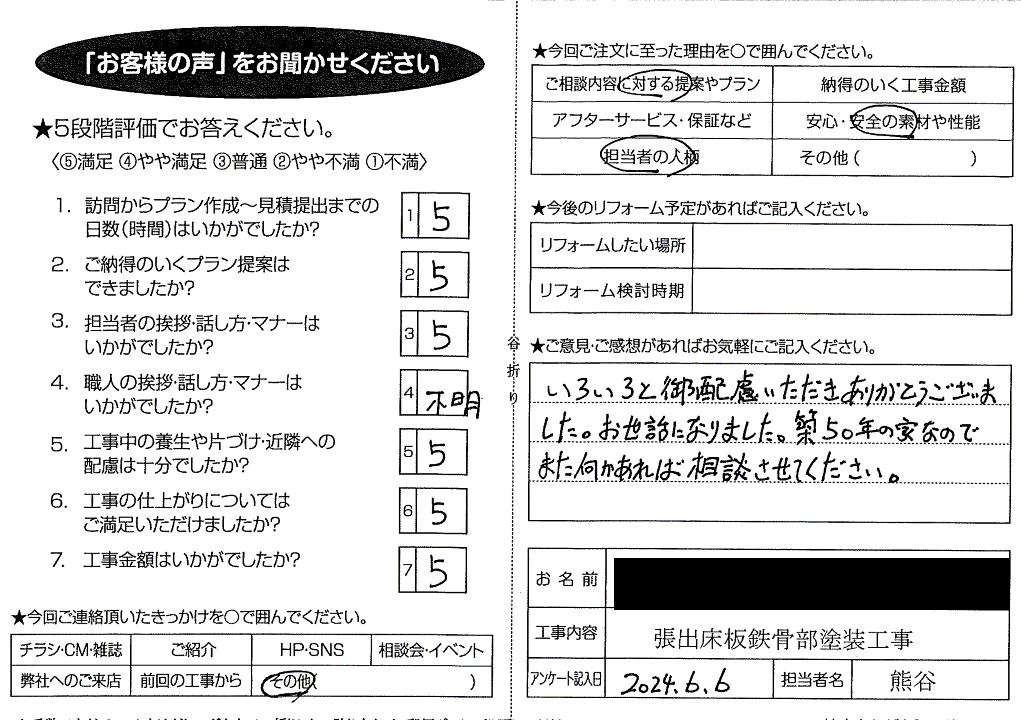 「お客様の声」をお聞かせください
★5段階評価でお答えください。
〈⑤満足 ④やや満足 ③普通 ②やや不満 ①不満〉
1. 訪問からプラン作成〜見積提出までの
日数(時間)はいかがでしたか? 1 5
2. ご納得のいくプラン提案は
できましたか? 2 5
3. 担当者の挨拶・話し方・マナーは
いかがでしたか? 3 5
4. 職人の挨拶・話し方・マナーは
いかがでしたか? 4 不明
5. 工事中の養生や片づけ・近隣への
配慮は十分でしたか? 5 5
6. 工事の仕上がりについては
ご満足いただけましたか? 6 5
7. 工事金額はいかがでしたか? 7 5
★今回ご連絡頂いたきっかけを○で囲んでください。
チラシ・CM・雑誌 ご紹介 HP・SNS 相談会・イベント
弊社へのご来店 前回の工事から その他( )
谷折り
★今回ご注文に至った理由を○で囲んでください。
ご相談内容に対する提案やプラン 納得のいく工事金額
アフターサービス・保証など 安心・安全の素材や性能
担当者の人柄 その他( )
★今後のリフォーム予定があればご記入ください。
リフォームしたい場所
リフォーム検討時期
★ご意見・ご感想があればお気軽にご記入ください。
いろいろと御配慮いただきありがとうございま
した。お世話になりました。築50年の家なので
また何かあれば相談させてください。
お名前
工事内容 張出床板鉄骨部塗装工事
アンケート記入日 2024.6.6 担当者名 熊谷